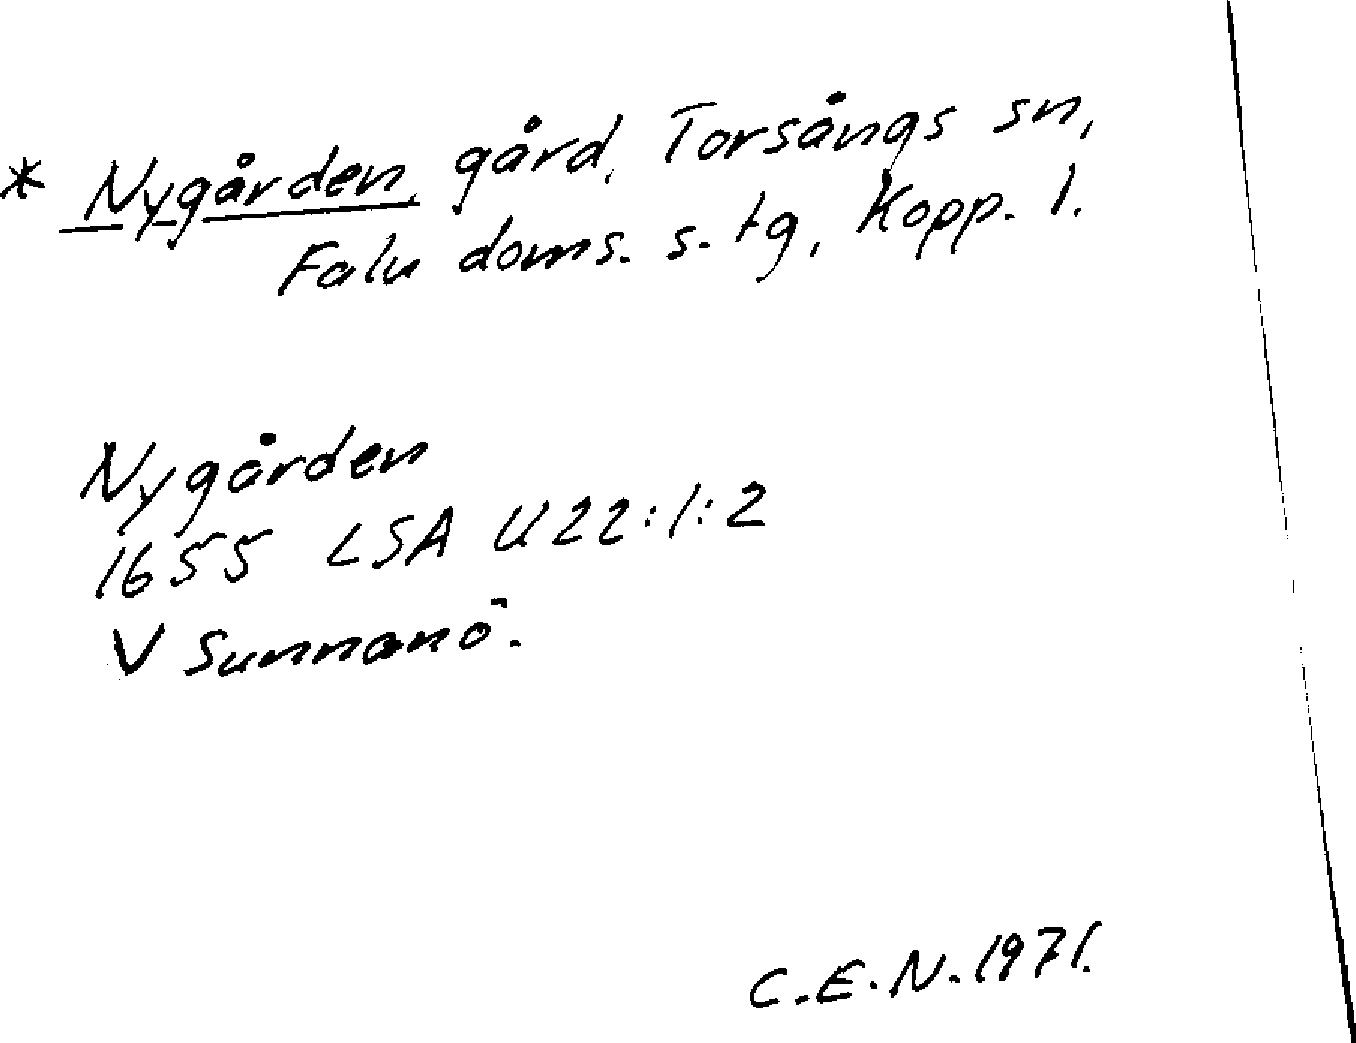 * Nygården, gård, Torsångs sn,
Falu doms. s. tg, Kopp. l.
Nygården
1655 LSA U22:1:2
V Sunnanö.
C.E.N. 1971.